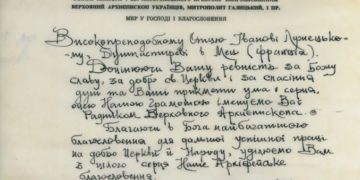 ВЕРХОВНИЙ АРХИЄПИСКОП УКРАЇНЦІВ, МИТРОПОЛИТ ГАЛИЦЬКИЙ, І ПР.
МИР У ГОСПОДІ І БЛАГОСЛОВЕННЯ
Високопреподобному Отцю Іванові
му, Душпастиреві в Мец (Франція).
Оцінюючи Вашу ревність за Божу
славу, за добро св. Церкви і за спасіння
душ та Ваші прикмети ума і серця,
оцею Нашою Грамотою іменуємо Вас
Радником Верховного Архиєпископа.
Благаючи в Бога найбагатшого
благословення для дальшої успішної праці
на добро Церкви й Народу, уділяємо Вам
з цілого серця Наше Архиєрейське
благословення.